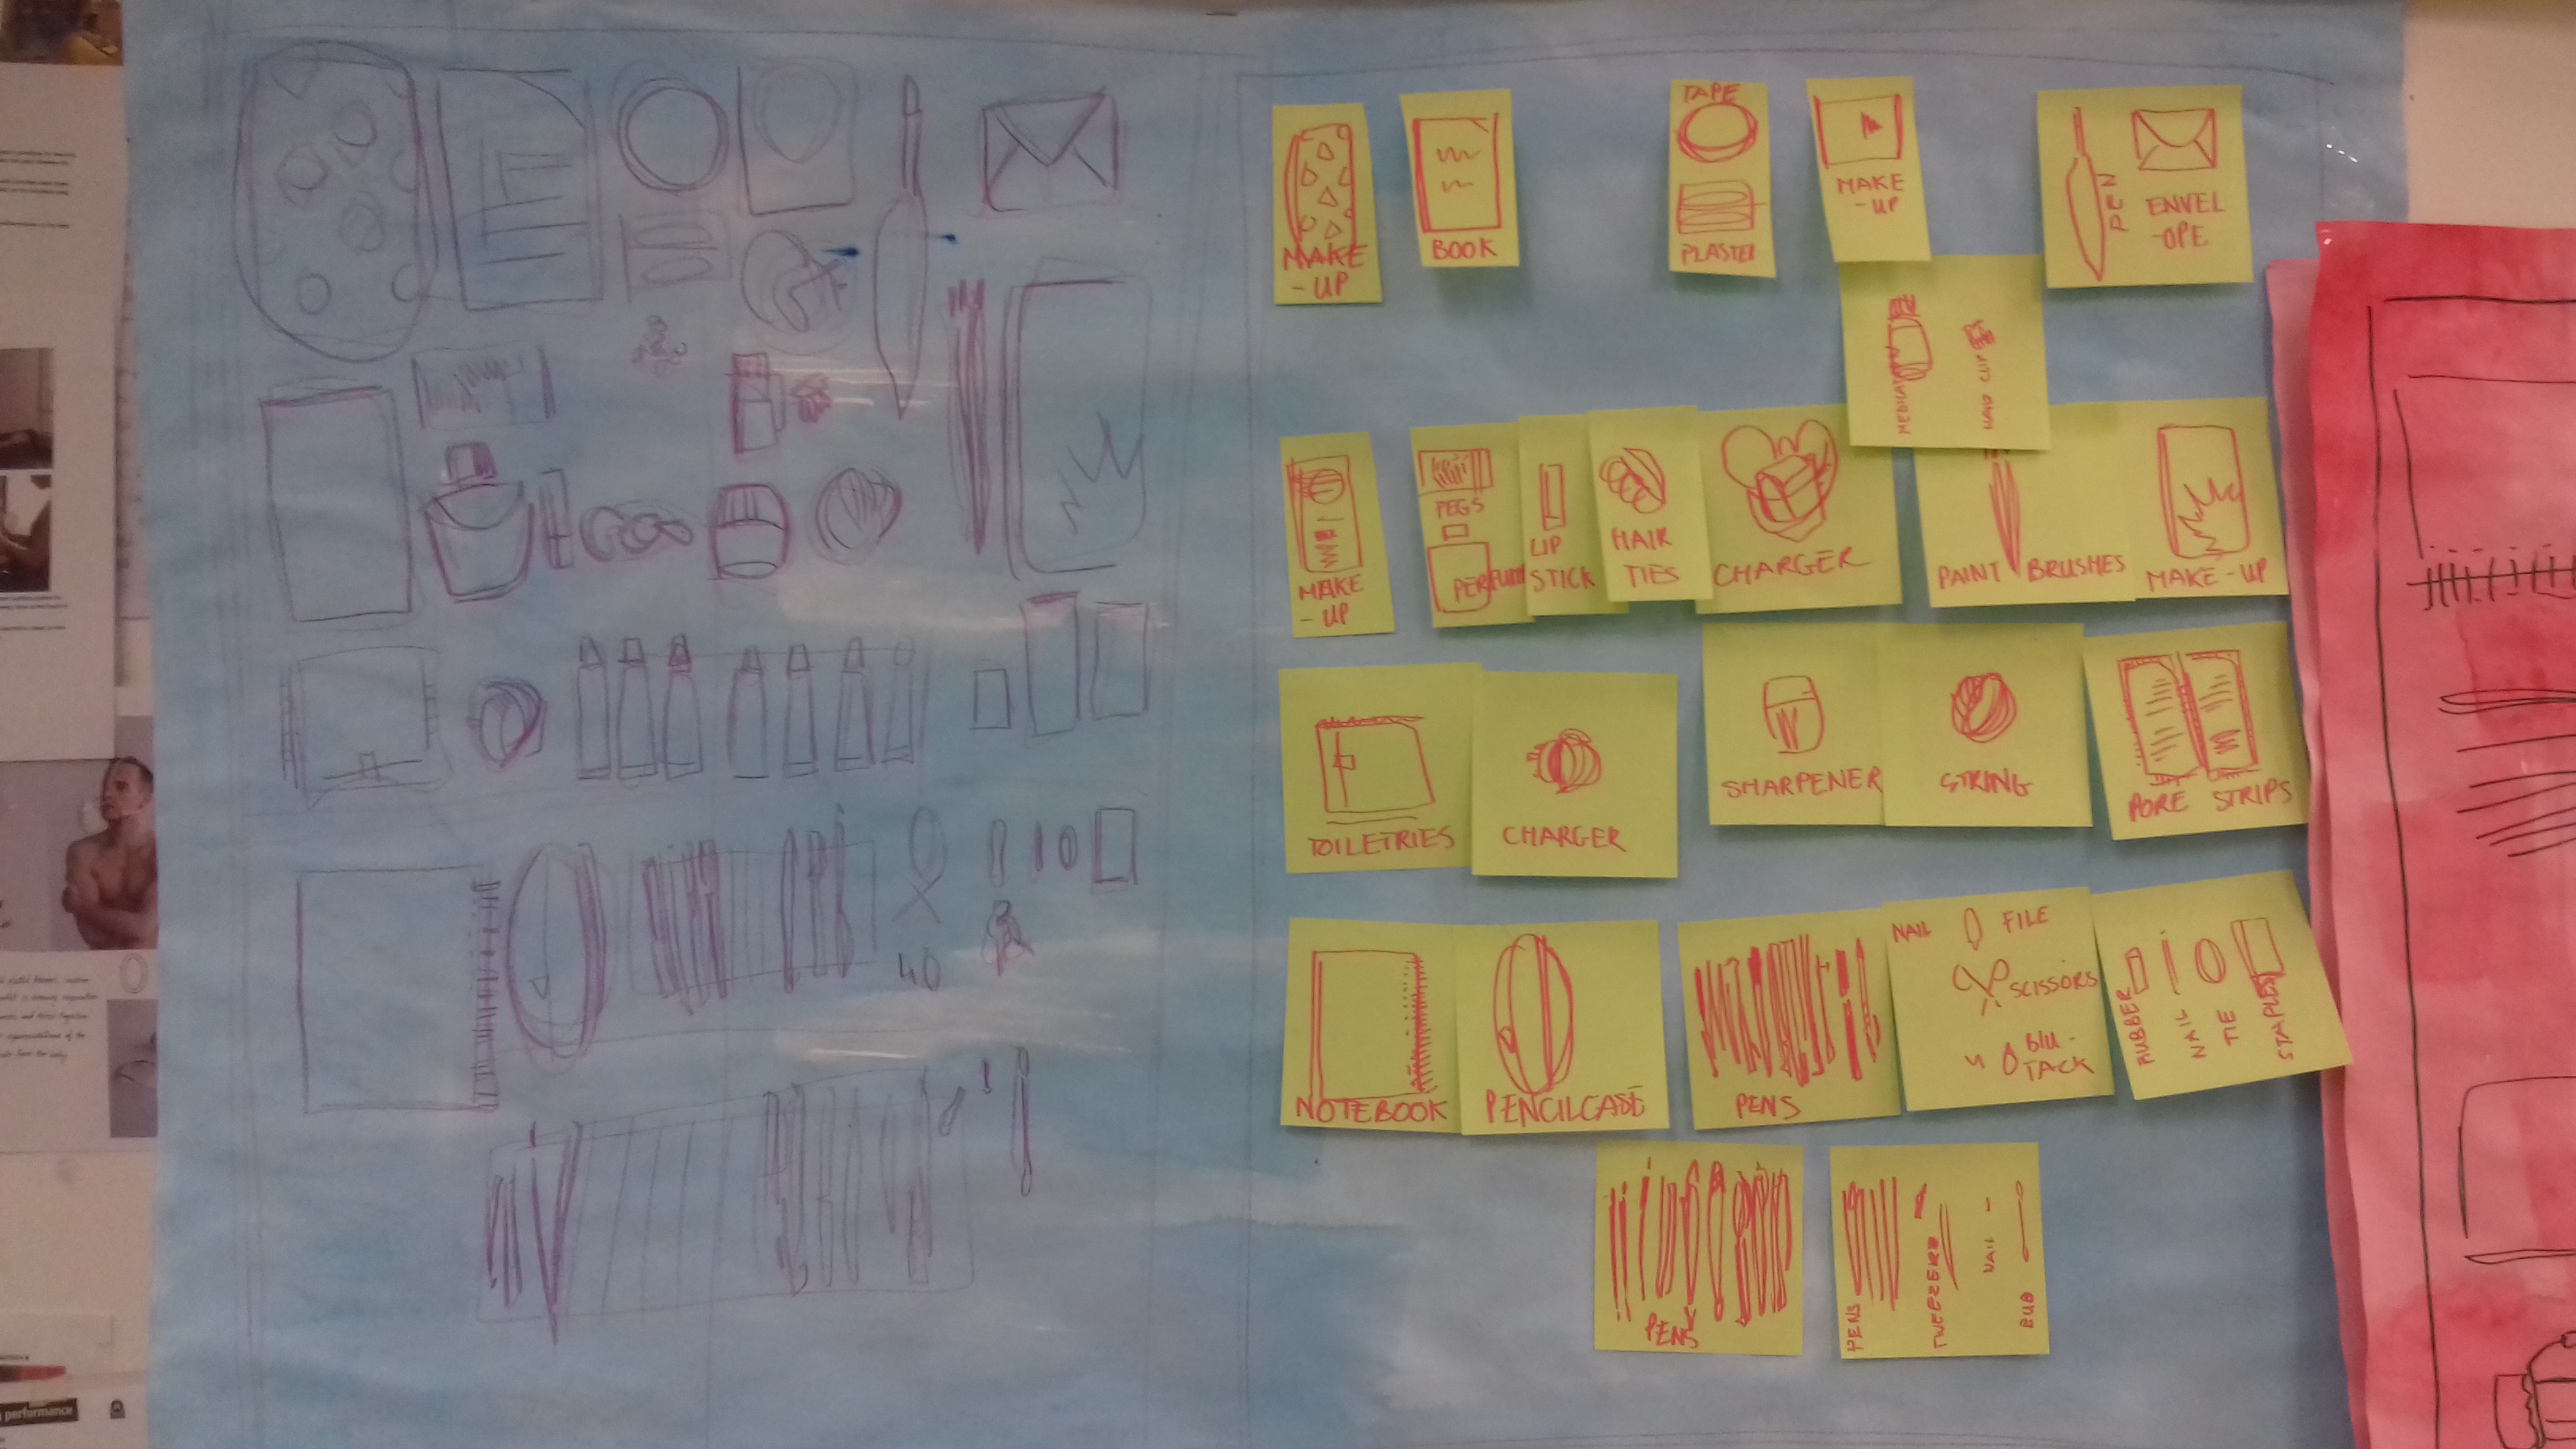 TAPE
MAKE
-UP
BOOK
PLASTER
MAKE
-UP
PEN
ENVEL
-OPE
MAKE
-UP
PEGS
PERFUM
LIP
STICK
HAIR
TIES
CHARGER
PAINT BRUSHES
MAKE-UP
TOILETRIES
CHARGER
SHARPENER
STRING
PORE STRIPS
NOTEBOOK
PENCILCASE
PENS
NAIL FILE
SCISSORS
BLU-
TACK
RUBBER
NAIL
TIE
STAPLES
PENS
PENS
TWEEZERS
NAIL
BUD
40
performance